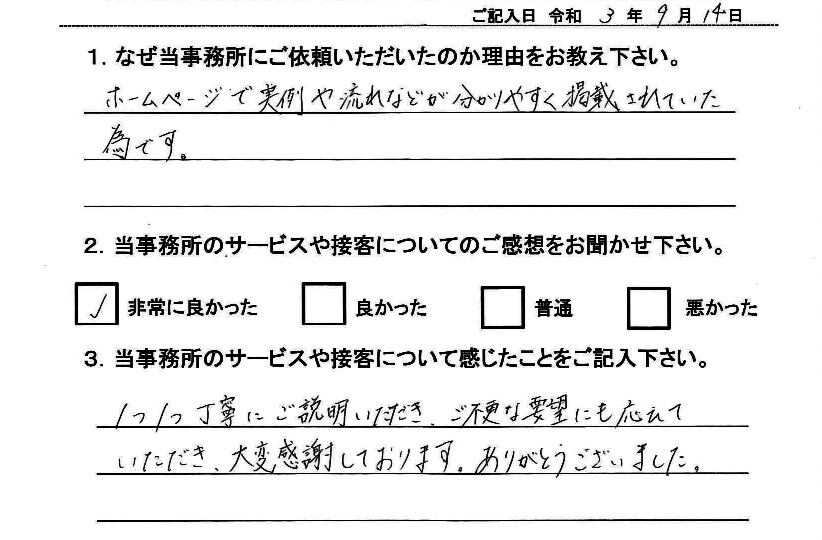 ご記入日 令和 3 年 9 月 14 日
1. なぜ当事務所にご依頼いただいたのか理由をお教え下さい。
ホームページで実例や流れなどが分かりやすく掲載されていた
為です。
2. 当事務所のサービスや接客についてのご感想をお聞かせ下さい。
✓ 非常に良かった 良かった 普通 悪かった
3. 当事務所のサービスや接客について感じたことをご記入下さい。
1つ1つ丁寧にご説明いただき、ご不便な要望にも応えて
いただき、大変感謝しております。ありがとうございました。